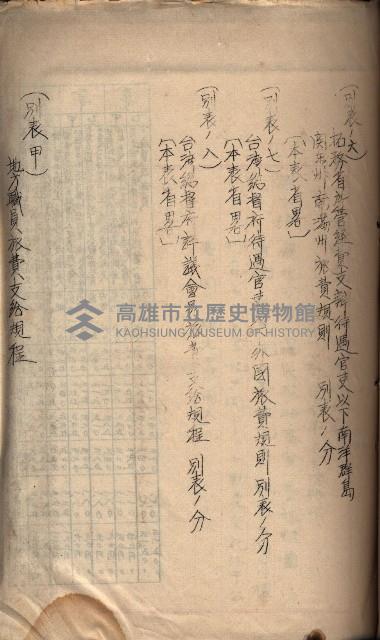 (別表ノ六)
拓務省所管経費支辨待遇官吏以下南洋群島
関東州、南満州旅費規則 別表ノ分
〔本表省畧〕
(別表ノ七)
台湾総督府待遇官吏 外国旅費規則 別表ノ分
〔本表省畧〕
(別表ノ八)
台湾総督府評議會員旅費支給規程 別表ノ分
〔本表省畧〕
(別表甲)
地方職員旅費支給規程
高雄市立歷史博物館
KAOHSIUNG MUSEUM OF HISTORY